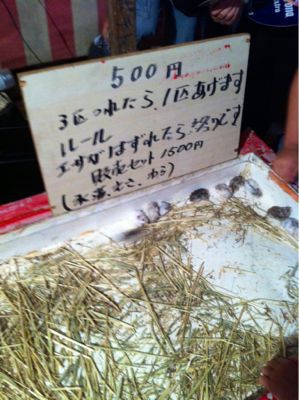 500円
3匹つれたら、1匹あげます
ルール
エサがはずれたら、終りです
販売セット1500円
えさ、わら)